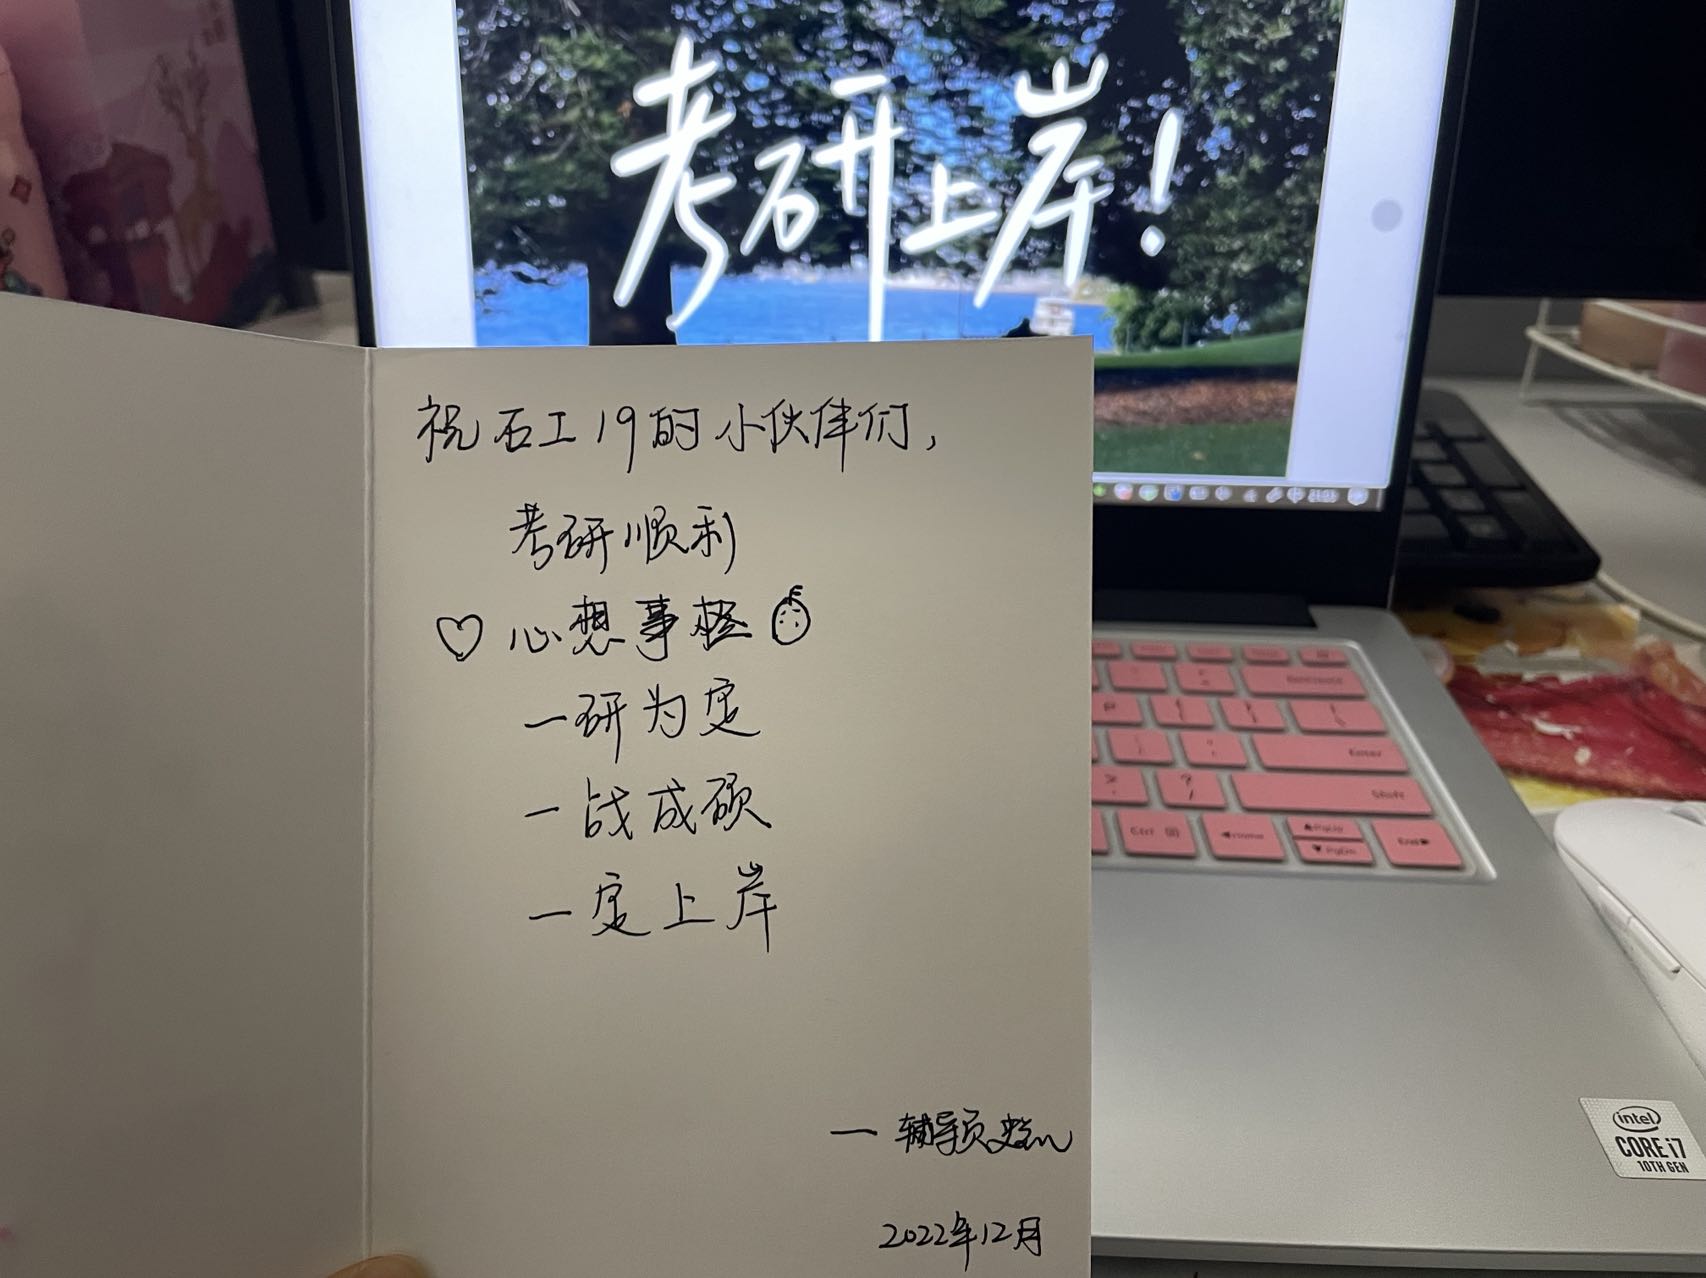 考研上岸!
祝石工19的小伙伴们,
考研顺利
心想事橙
一研为定
一战成硕
一定上岸
一辅导员
2022年12月
Enter
Shift
Ctrl
Home
PgUp
PgDn
End
intel
CORE i7
10TH GEN